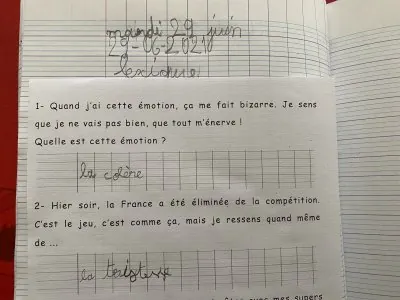 mardi 29 juin
29-06-2021
lexique
1- Quand j'ai cette émotion, ça me fait bizarre. Je sens
que je ne vais pas bien, que tout m'énerve !
Quelle est cette émotion ?
la colère
2- Hier soir, la France a été éliminée de la compétition.
C'est le jeu, c'est comme ça, mais je ressens quand même
de ...
la tristesse
avec mes supers